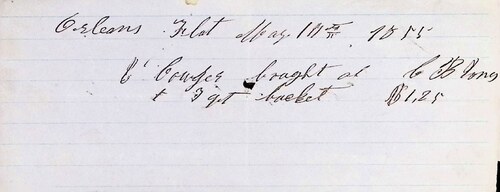 Orleans Flat May 10th 1855
Cowper bought of C B
+ 1 qt bucket $1,25